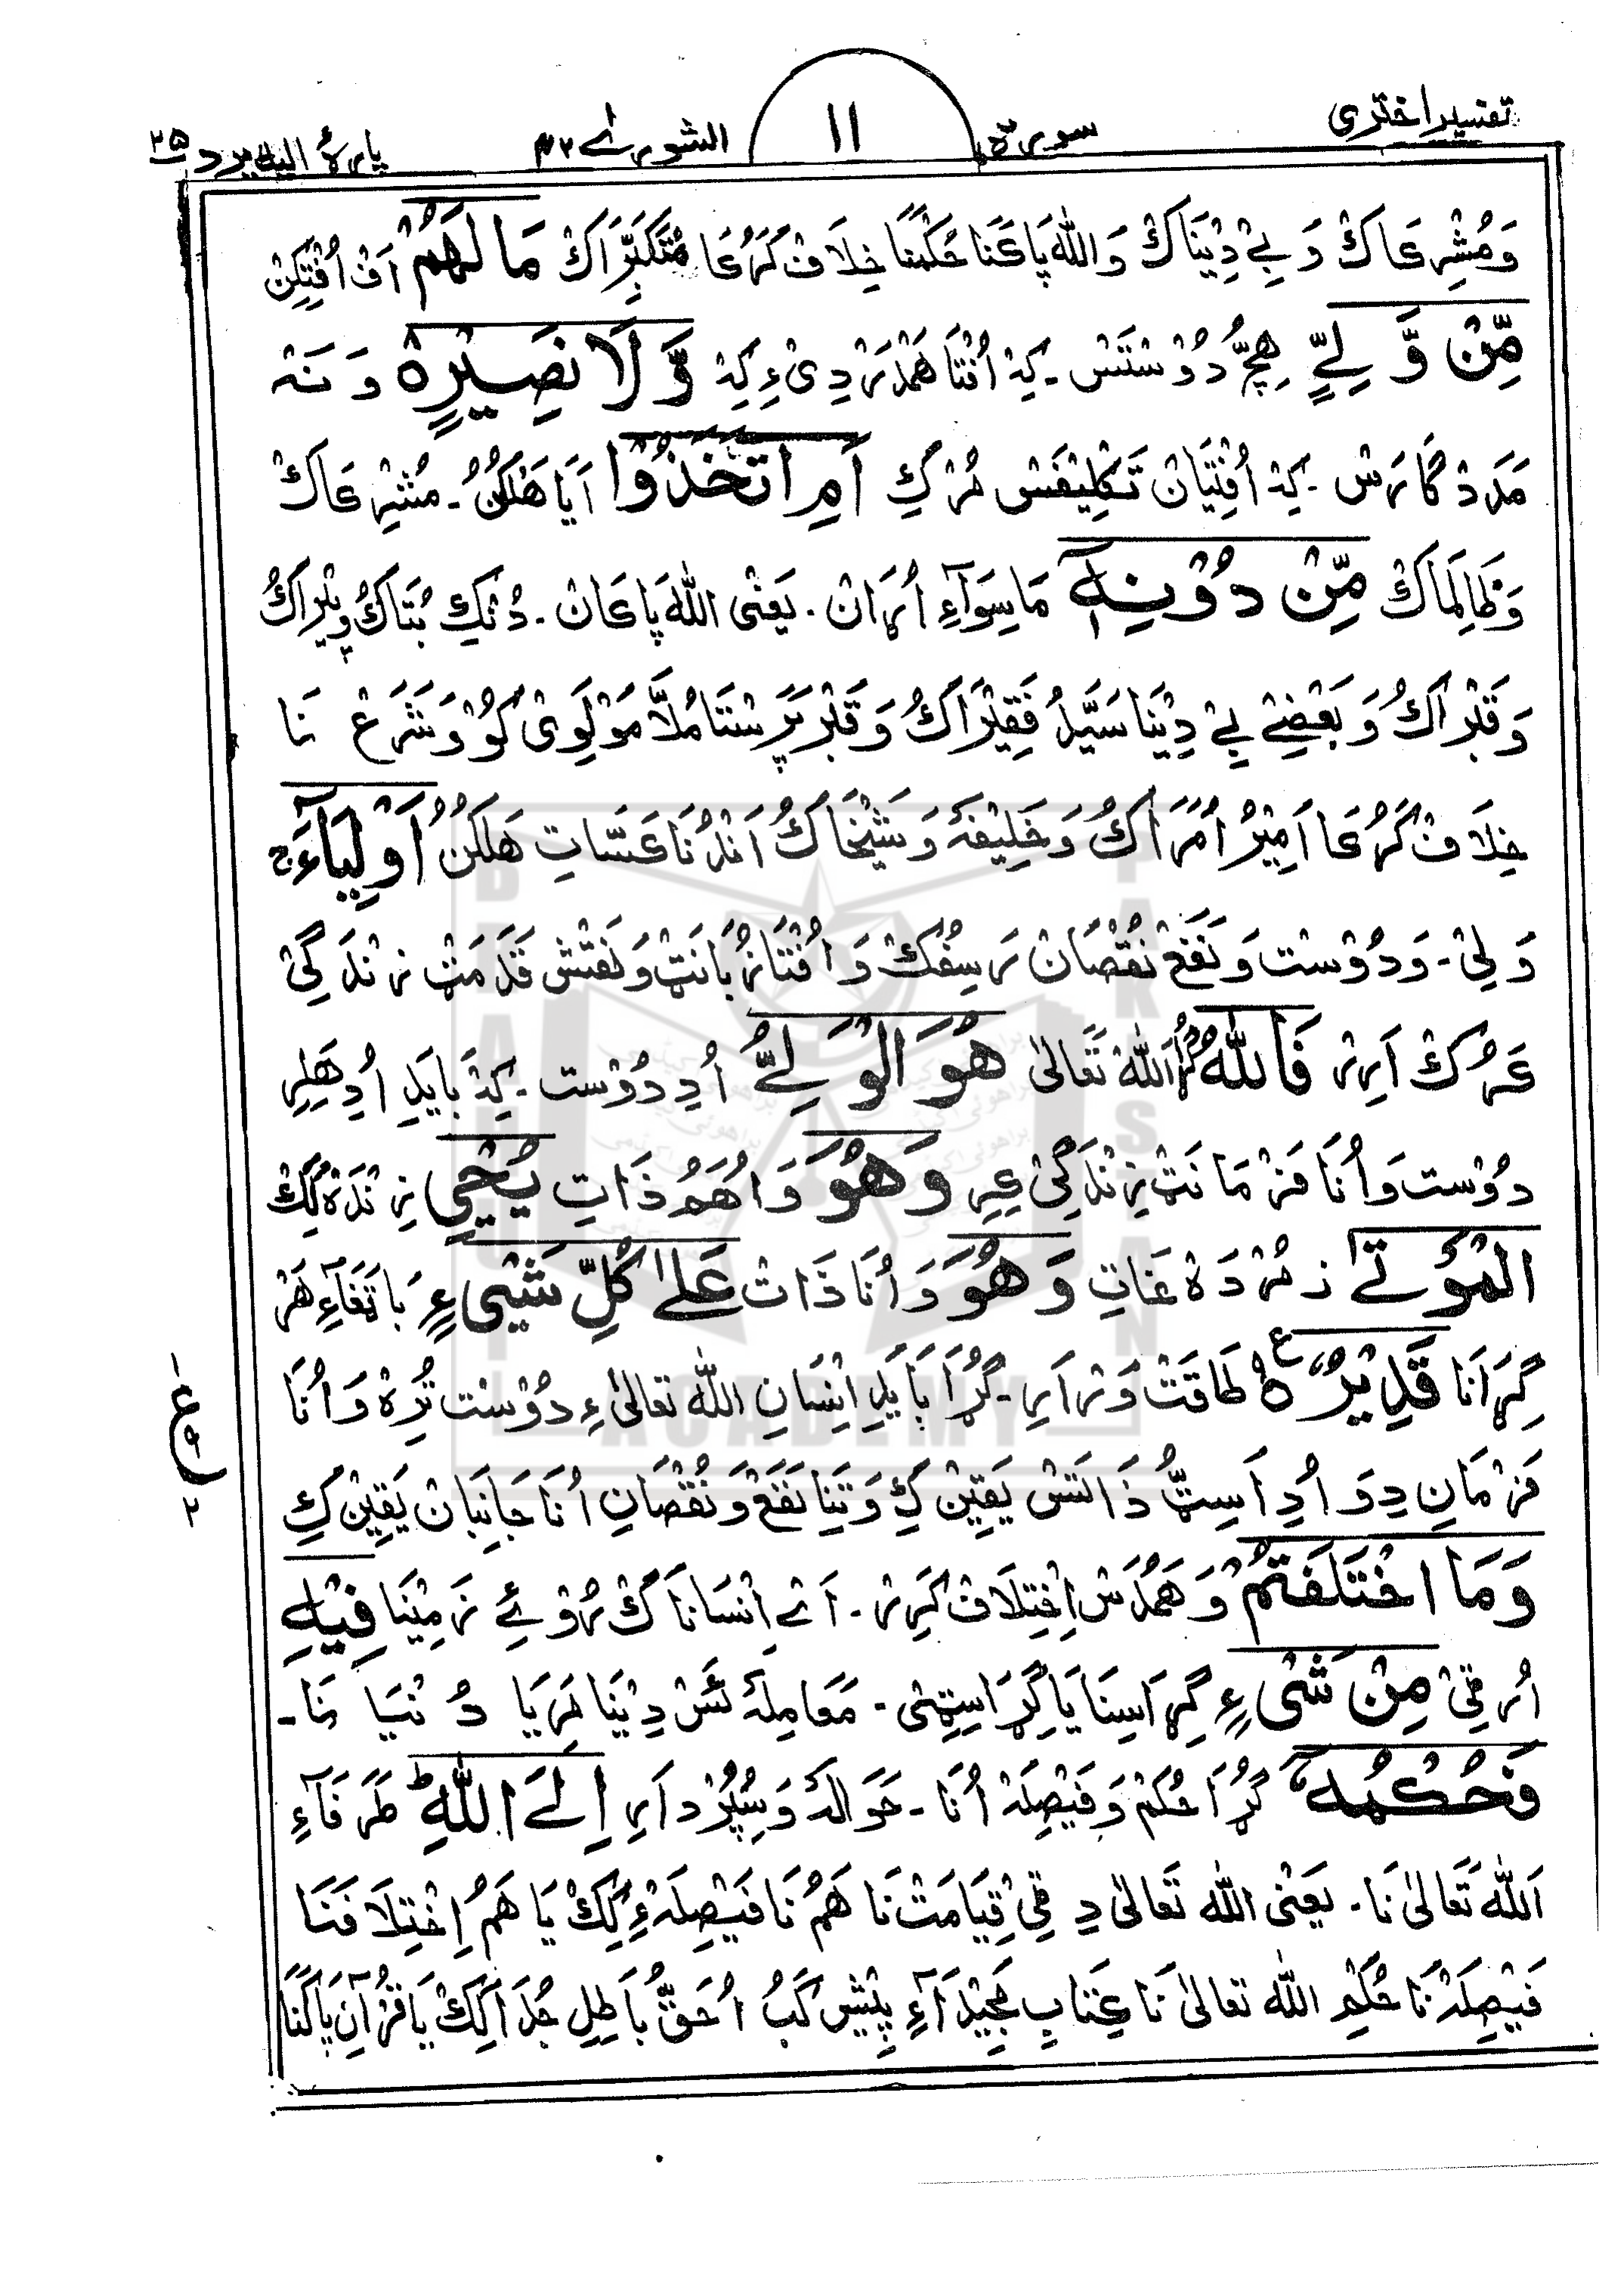 تفسیر اختری سورة ۱۱ الشورے ۴۲ پارۂ الیہ یرد ۲۵
وَمُشْرِعَاکْ وَبےْ دِیْنَاکْ وَاللّٰہ پَاعَنَا حُکْمْنَا خِلَافْ کَرُعَا مُتَکَبِّرَاکْ مَا لَهُمْ اَفْ اُفْتِکِنْ
مِّنْ وَّلِیٍّ هِچُّ دُوْسْتَسْ ۔ کِہْ اُفْتَا هَمْدَرْدِیْ ءِ کِہْ وَّلَا نَصِیْرٍہ وَ نَہْ
مَدَدْ گَارَسْ ۔ کِہْ اُفْتِیَانْ تَکْلِیْفَسْ مُرْکِ اَمِ اتَّخَذُوْا اَیَا هَلْکُنُ ۔ مُشْرِعَاکْ
وَظَالِمَاکْ مِّنْ دُوْنِهٖٓ مَاسِوَآءِ اُرَانْ ۔ یَعْنٰی اللّٰہ پَاعَانْ ۔ دُنْکِ بُتَاکُ وَپِیْرَاکُ
وَقَبْرَاکُ وَبَعْضِےْ بےْ دِیْنَا سَیَّدْ فَقِیْرَاکُ وَقَبْرپَرَسْتَا مُلَّا مَوْلَوِیْ کُوْ وَشَرَعْ نَا
خِلَافْ کَرُعَا اَمِیْرُ اُمَرَاکُ وَخَلِیْفَہْ وَشَیْخَاکُ اَنْدُنَا عَسَّاتِ هَلْکُنُ اَوْلِیَآءَ ج
وَلِیْ ۔ وَدُوْسْت وَنَفَعْ نُقْصَانْ رَسِفُکْ وَاُفْتَا زُبَانَٹْ وَنَقْشِ قَدَمَٹْ زِنْدَگِیْ
عَرُکْ اَرِرْ فَاللّٰهُ گُڑَا اَللّٰہْ تَعَالٰی هُوَ الْوَلِیُّ اُدِ دُوْسْت ۔ کِہْ بَایَدِ اُدِ هَلِرِ
دُوْسْت وَاُنَا فَرْمَانَٹْ زِنْدَگِیْ عِرِ وَهُوَ وَاَهُمُ ذَاتِ یُحْیِ زِنْدَہْ کِکْ
الْمَوْتٰے مُرْدَہْ غَاتِ وَهُوَ وَاُنَا ذَاتْ عَلٰے کُلِّ شَیْءٍ بَاتَغَآءِ هَرْ
گِرَانَا قَدِیْرٌ ہ ع طَاقَتْ وَرْ اَرِ ۔ گُڑَا بَایَدِ اِنْسَانِ اللّٰہ تَعَالٰی ءِ دُوْسْت تُرِہْ وَاُنَا
فَرْمَانِ دِوَ اُدِ اَسِٹُّ ذَاتَسْ یَقِیْن کِ وَتَنَا نَفَعْ وَنُقْصَانِ اُنَا جَانِبَانْ یَقِیْن کِ
وَمَا اخْتَلَفْتُمْ وَهَمْدَسْ اِخْتِلَافْ کَرِرْ ۔ اَےْ اِنْسَانَاکْ رُوْئےِ زَمِیْنَا فِیْهِ
اُرقِیْ مِنْ شَیْءٍ گِرَاسِنَا یَا گِرَاسِٹِیْ ۔ مَعَامِلَہْ ئَسْ دِیْنَا مَرِ یَا دُنْیَا نَا ۔
فَحُکْمُهٗٓ گُڑَا حُکْمْ وَفَیْصِلَہْ اُنَا ۔ حَوَالَہْ وَسُپُرْد اَرِ اِلَے اللّٰهِ ط طَرَفَآءِ
اَللّٰہْ تَعَالٰی نَا ۔ یَعْنٰی اللّٰہ تَعَالٰی دِ قِیْ قِیَامَتْ نَا هَمُ نَا فَیْصِلَہْ ءِ کِکْ یَا هَمُ اِخْتِلَافَنَا
فَیْصِلَہْ نَا حُکْمِ اللّٰہ تَعَالٰی نَا عِتَابِ مَجِیْدَآءِ پِیْشِ کَبُ اُ حَقُّ بَاطِلِ جُدَا کِکْ یَا قُرْآنِ پَاکَنَا
ركوع ۲
BRAHUI ACADEMY PAKISTAN